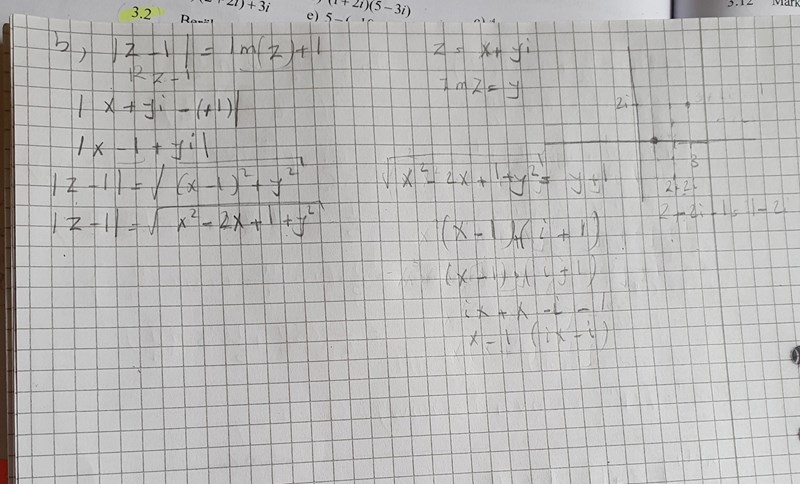 3.2
+ 2i) + 3i
e) 5 – (
+ 2i)(5 – 3i)
3.12 Mark
b, |z - 1| = Im(z) + 1
|x + yi - (+1)|
|x - 1 + yi|
|z - 1| = √(x-1)² + y²
|z - 1| = √x² - 2x + 1 + y²
z = x + yi
Im z = y
√x² - 2x + 1 + y² = y + 1
(x - 1) + (i + 1)
(x - 1) + (i + 1)
ix + x - i - 1
x - 1 (ix - i)
2i
3